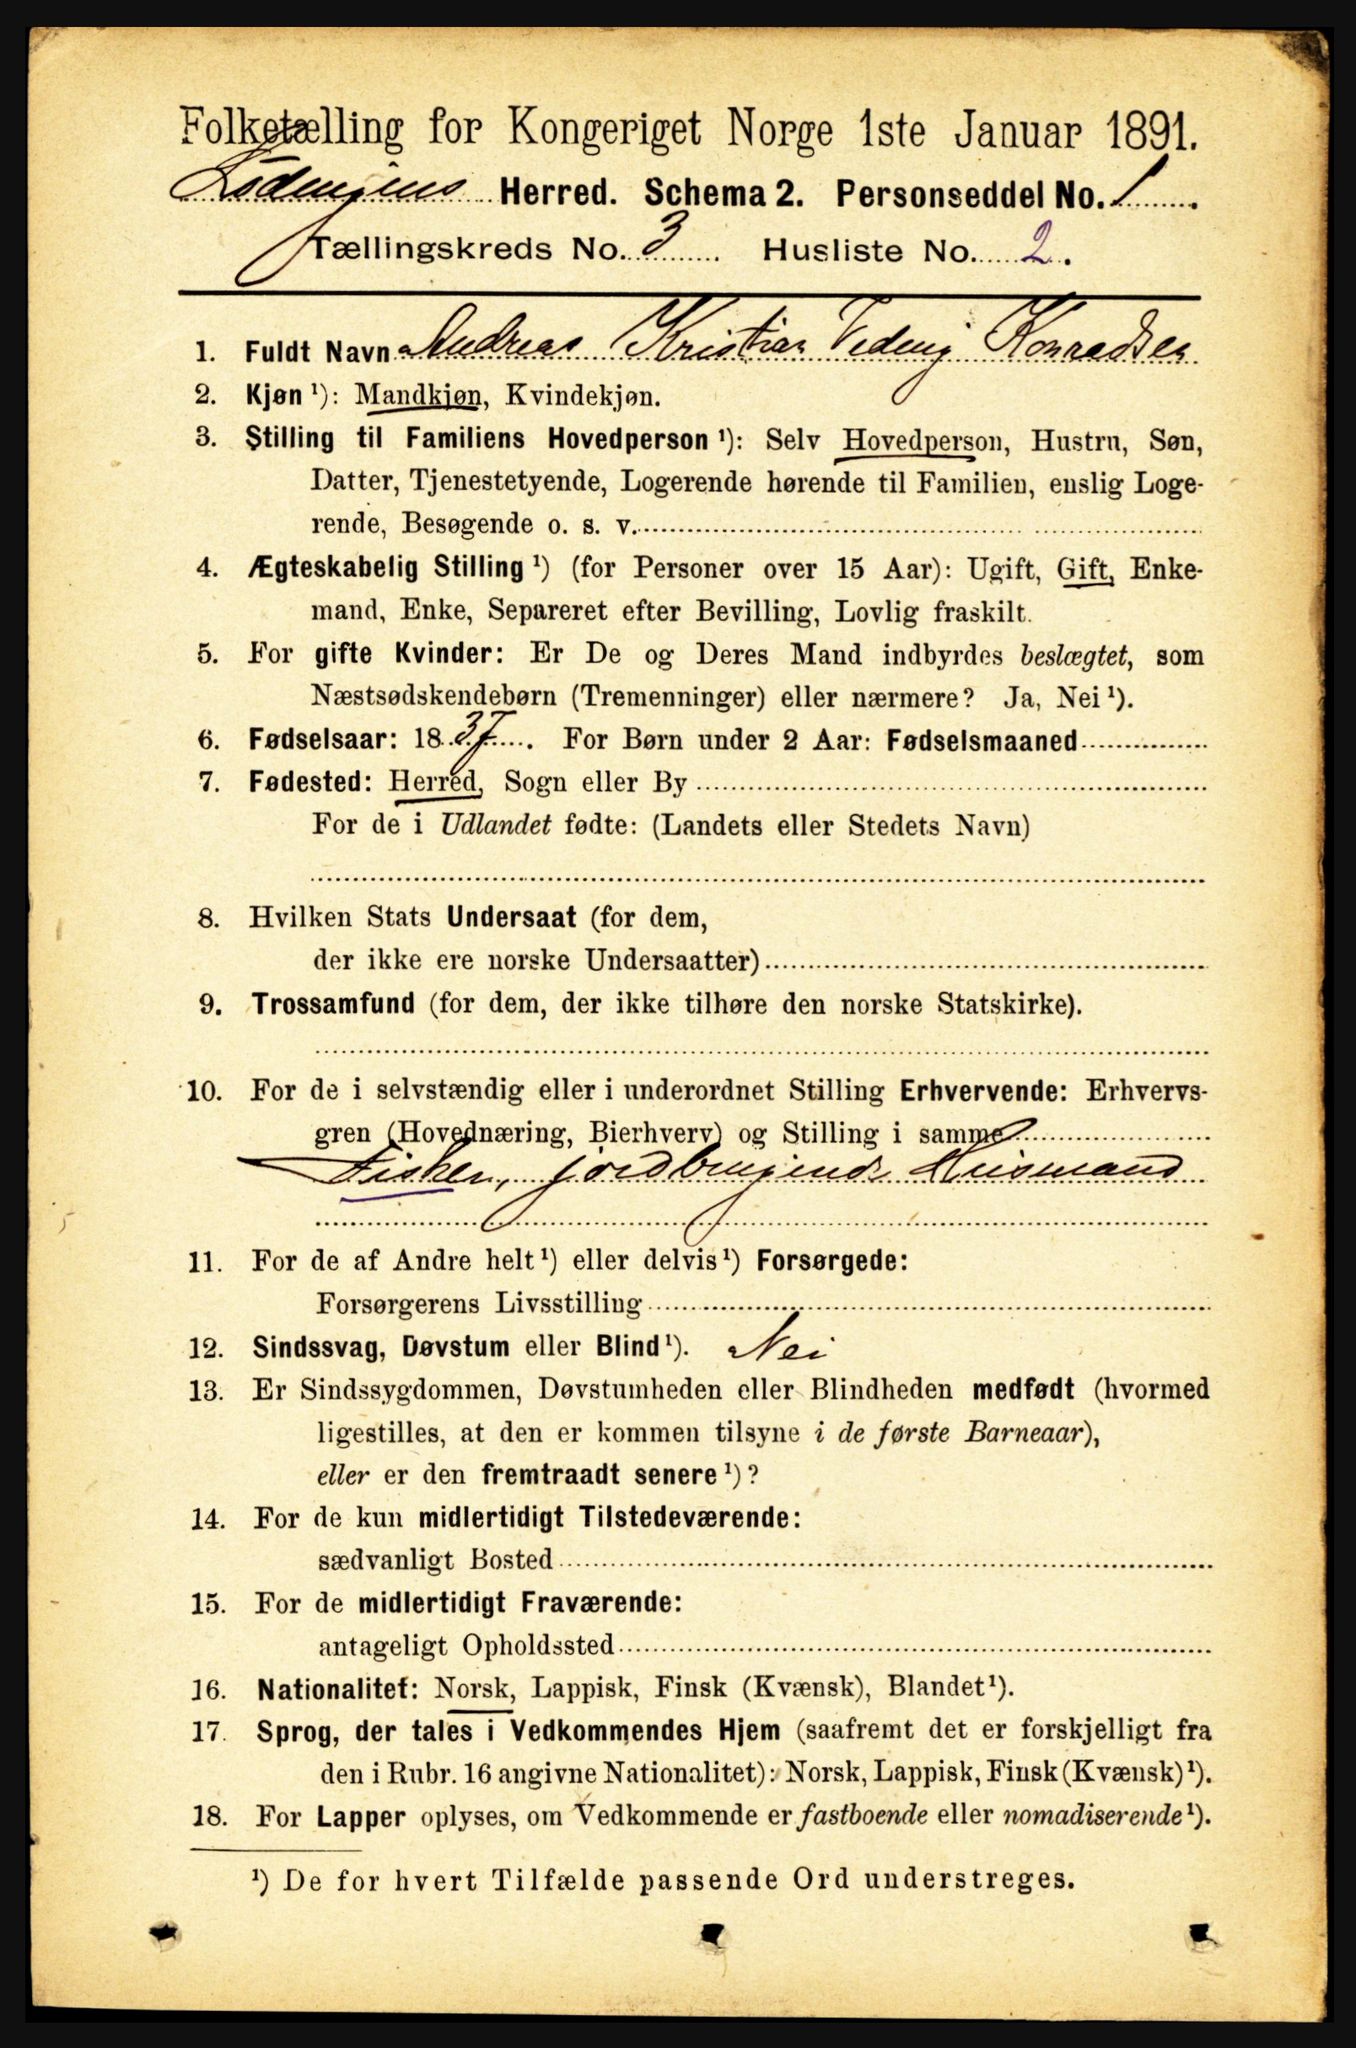 Folketælling for Kongeriget Norge 1ste Januar 1891.
Lødingens Herred. Schema 2. Personseddel No. 1.
Tællingskreds No. 3 Husliste No. 2.
1. Fuldt Navn Andreas Kristian Konradsen
2. Kjøn ¹): Mandkjøn, Kvindekjøn.
3. Stilling til Familiens Hovedperson ¹): Selv Hovedperson, Hustru, Søn,
Datter, Tjenestetyende, Logerende hørende til Familien, enslig Loge-
rende, Besøgende o. s. v.
4. Ægteskabelig Stilling ¹) (for Personer over 15 Aar): Ugift, Gift, Enke-
mand, Enke, Separeret efter Bevilling, Lovlig fraskilt.
5. For gifte Kvinder: Er De og Deres Mand indbyrdes beslægtet, som
Næstsødskendebørn (Tremenninger) eller nærmere? Ja, Nei ¹).
6. Fødselsaar: 1837. For Børn under 2 Aar: Fødselsmaaned
7. Fødested: Herred, Sogn eller By
For de i Udlandet fødte: (Landets eller Stedets Navn)
8. Hvilken Stats Undersaat (for dem,
der ikke ere norske Undersaatter)
9. Trossamfund (for dem, der ikke tilhøre den norske Statskirke).
10. For de i selvstændig eller i underordnet Stilling Erhvervende: Erhvervs-
gren (Hovednæring, Bierhverv) og Stilling i samme
Fisker, jordbrugende Husmand
11. For de af Andre helt ¹) eller delvis ¹) Forsørgede:
Forsørgerens Livsstilling
12. Sindssvag, Døvstum eller Blind ¹). Nei
13. Er Sindssygdommen, Døvstumheden eller Blindheden medfødt (hvormed
ligestilles, at den er kommen tilsyne i de første Barneaar),
eller er den fremtraadt senere ¹)?
14. For de kun midlertidigt Tilstedeværende:
sædvanligt Bosted
15. For de midlertidigt Fraværende:
antageligt Opholdssted
16. Nationalitet: Norsk, Lappisk, Finsk (Kvænsk), Blandet ¹).
17. Sprog, der tales i Vedkommendes Hjem (saafremt det er forskjelligt fra
den i Rubr. 16 angivne Nationalitet): Norsk, Lappisk, Finsk (Kvænsk) ¹).
18. For Lapper oplyses, om Vedkommende er fastboende eller nomadiserende ¹).
¹) De for hvert Tilfælde passende Ord understreges.